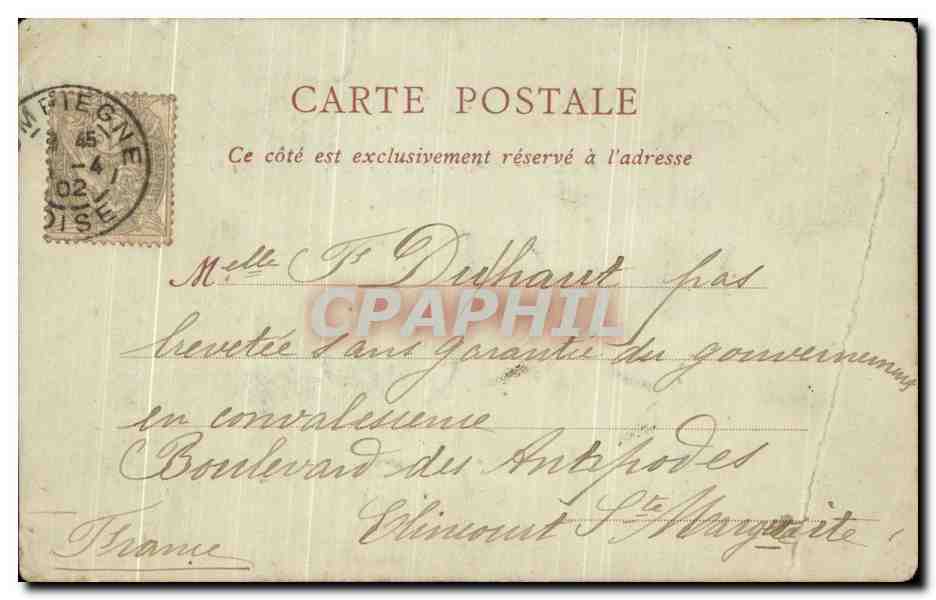 CARTE POSTALE
Ce côté est exclusivement réservé à l'adresse
MPIEGNE
45
-4
02
OISE
Melle F Duhaut pas
brevetée sans garantie du gouvernement
en convalescence
Boulevard des Antipodes
Elincourt Ste Marguerite
France
CPAPHIL